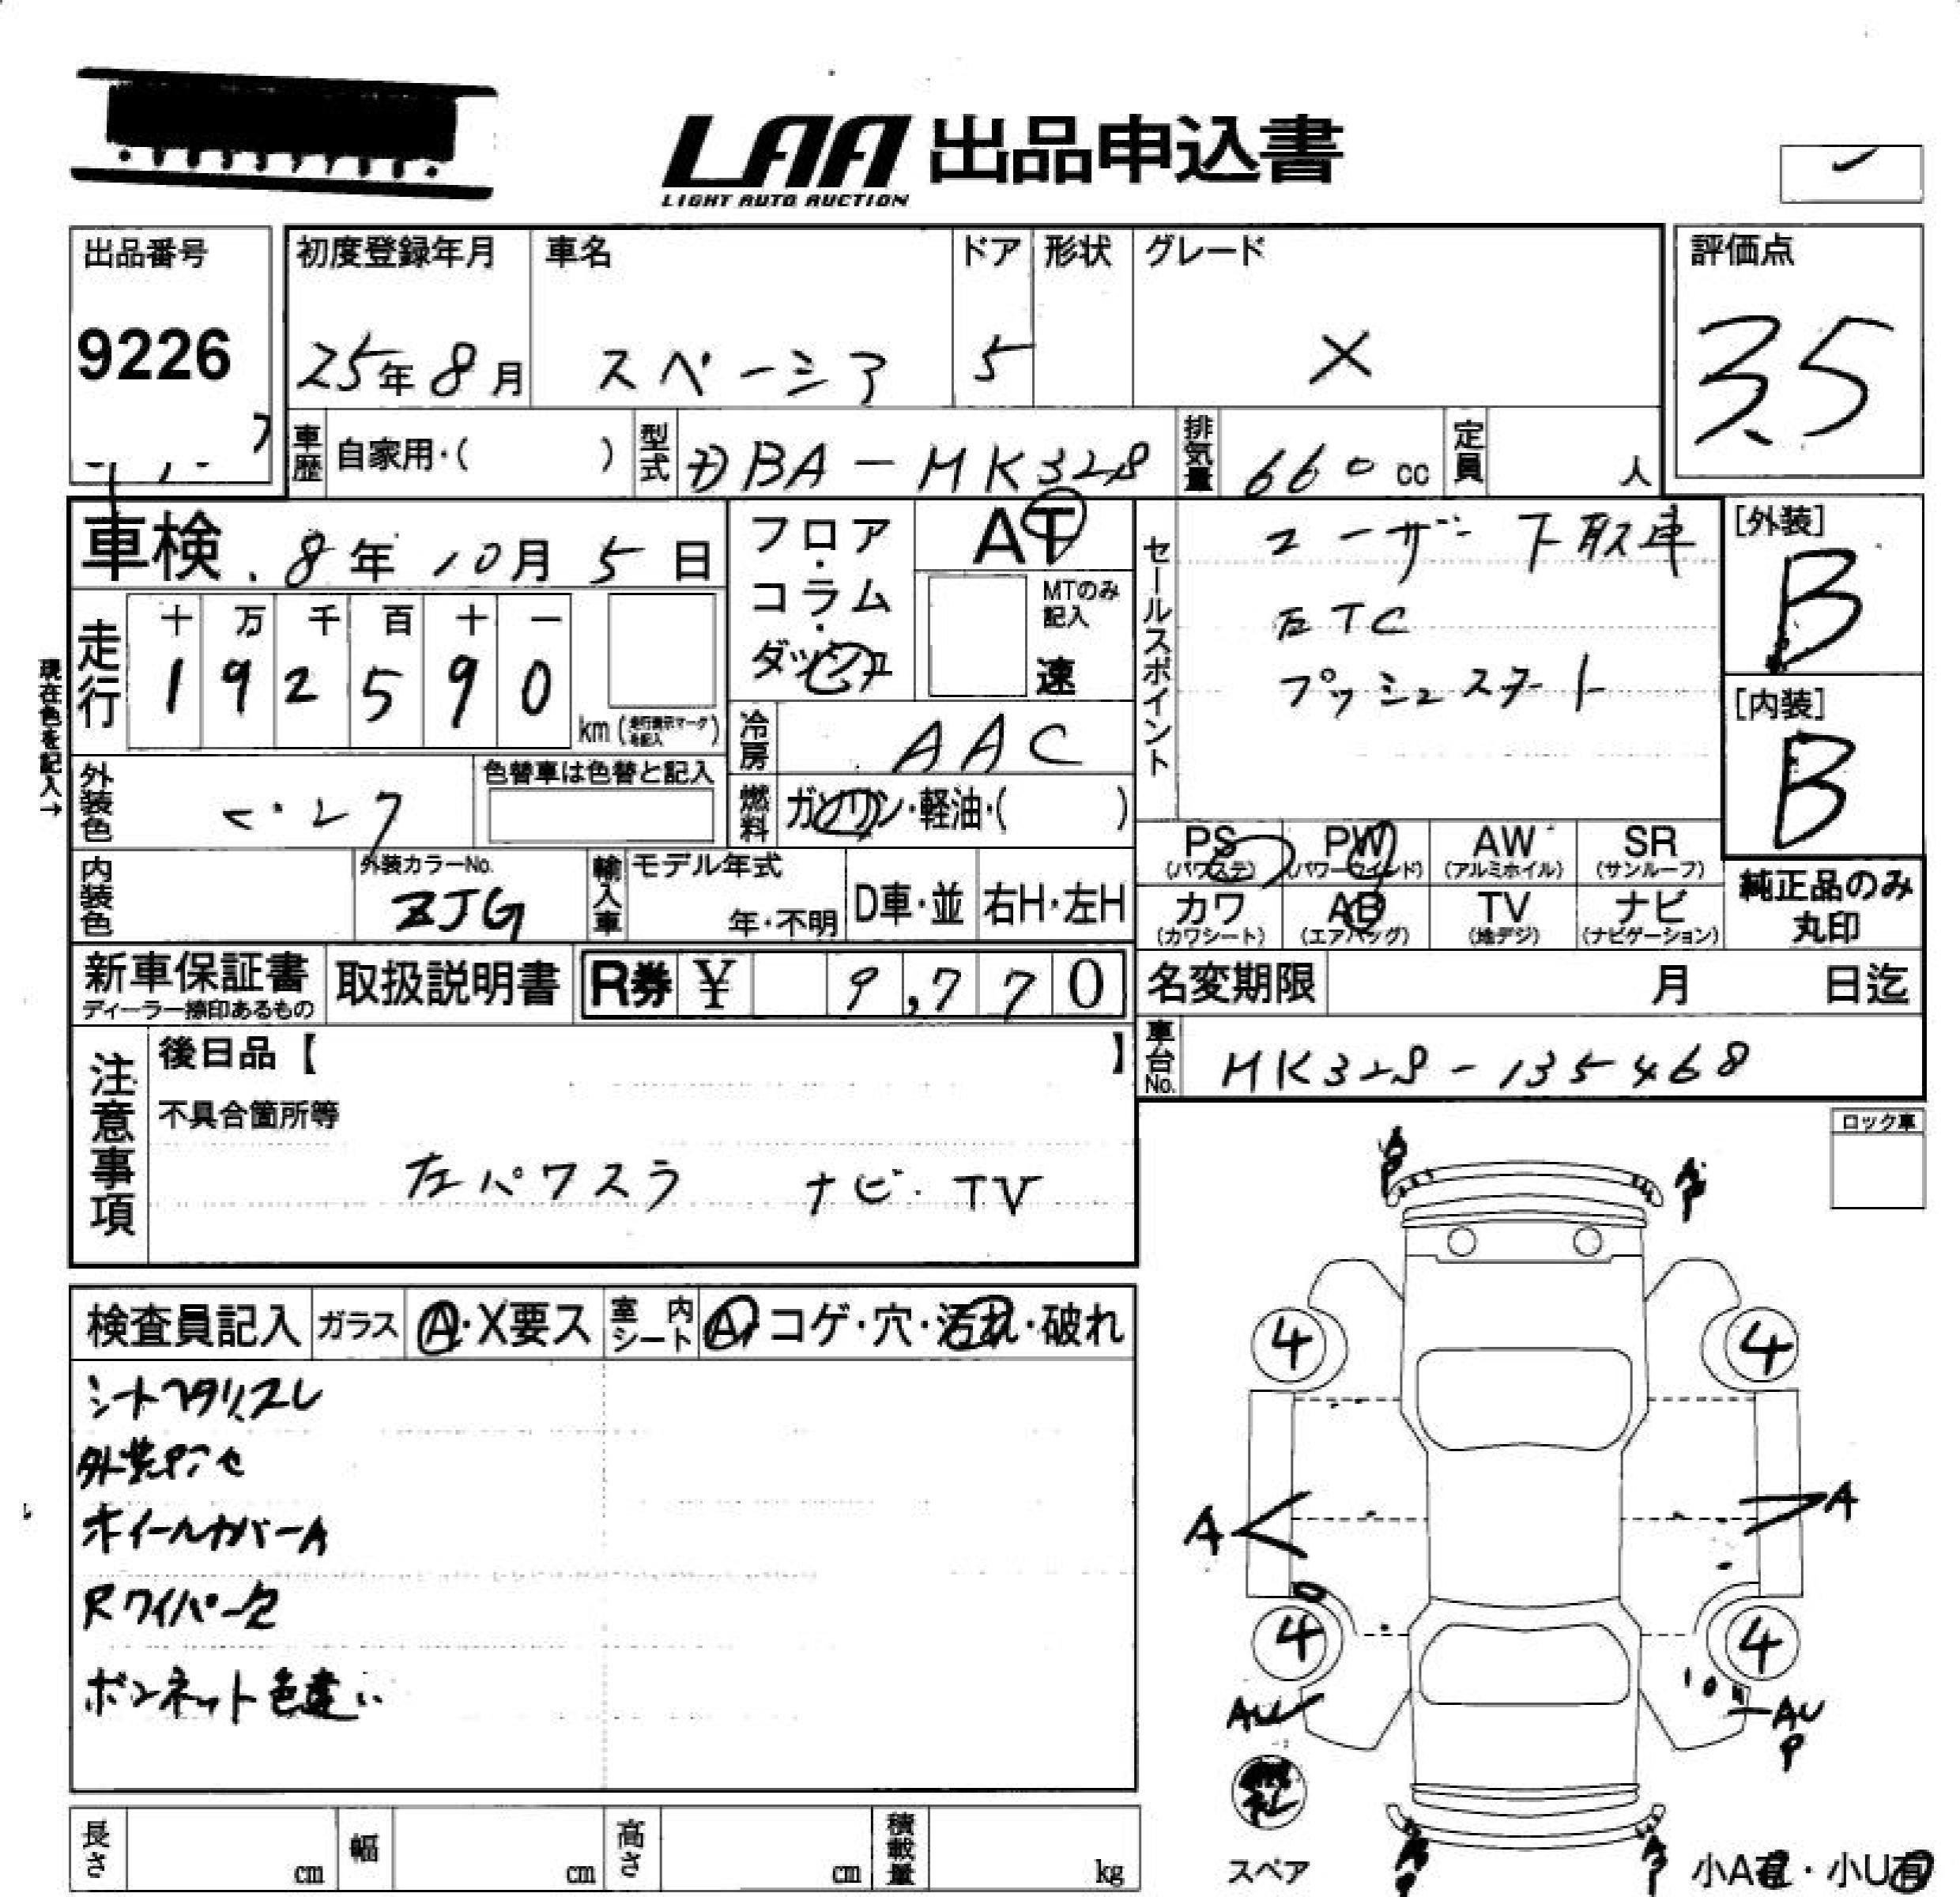 LAA 出品申込書
LIGHT AUTO AUCTION
出品番号
9226
初度登録年月
25年8月
車名
スペーシア
ドア
5
形状
グレード
X
評価点
3.5
車歴 自家用・( )
型式 DBA-MK32S
排気量 660cc
定員 人
車検 8年10月5日
フロア・コラム・ダッシュ
AT
MTのみ記入
速
セールスポイント
ユーザー下取車
ETC
プッシュスタート
[外装]
B
[内装]
B
現在色を記入→
走行
十 万 千 百 十 一
1 9 2 5 9 0
km (走行表示マークを記入)
冷房 AAC
燃料 ガソリン・軽油・( )
外装色 ピンク
色替車は色替と記入
内装色
外装カラーNo.
ZJG
輸入車
モデル年式
年・不明
D車・並
右H・左H
PS (パワステ)
PW (パワーウインド)
AW (アルミホイル)
SR (サンルーフ)
カワ (カワシート)
AB (エアバッグ)
TV (地デジ)
ナビ (ナビゲーション)
純正品のみ丸印
新車保証書
ディーラー捺印あるもの
取扱説明書
R券 ¥ 9,770
名変期限 月 日迄
車台No. MK32S-135468
注意事項
後日品【 】
不具合箇所等
左パワスラ ナビ・TV
ロック車
検査員記入
ガラス A・X要ス
室内シート A・コゲ・穴・汚れ・破れ
シートヘタリ、スレ
外装色アセ
ホイールカバーA
Rワイパー欠
ボンネット色違い
4 4
A A
4 4
AU AU
P
スペア
小A有・小U有
長さ cm
幅 cm
高さ cm
積載量 kg